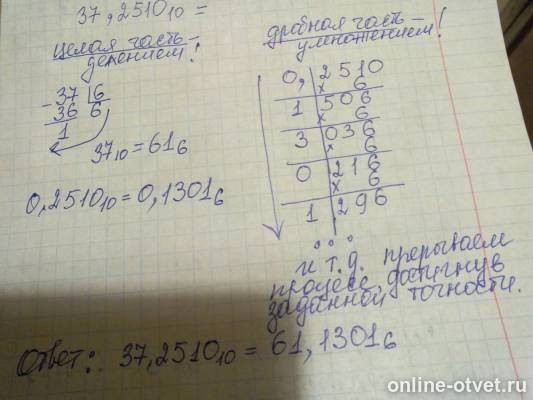 37,2510₁₀ =
целая часть –
делением!
37 | 6
– 36 6
1
37₁₀ = 61₆
0,2510₁₀ = 0,1301₆
дробная часть –
умножением!
0, | 2510
x 6
1 | 506
x 6
3 | 036
x 6
0 | 216
x 6
1 | 296
...
и т.д. прерываем
процесс, достигнув
заданной точности.
Ответ: 37,2510₁₀ = 61,1301₆
online-otvet.ru